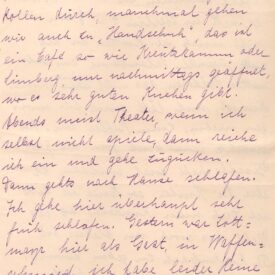 Rollen durch, manchmal gehen
wir auch zu „Handschuk“ das ist
ein Café so wie Kreutzkamm oder
Limberg nur nachmittags geöffnet,
wo es sehr guten Kuchen gibt.
Abends meist Theater, wenn ich
selbst nicht spiele, dann
ich ein und gehe
Dann gehts nach Hause schlafen.
Ich gehe hier überhaupt sehr
früh schlafen. Gestern war Lott-
mayr hier als Gast, in Waffen-
ich habe leider keine